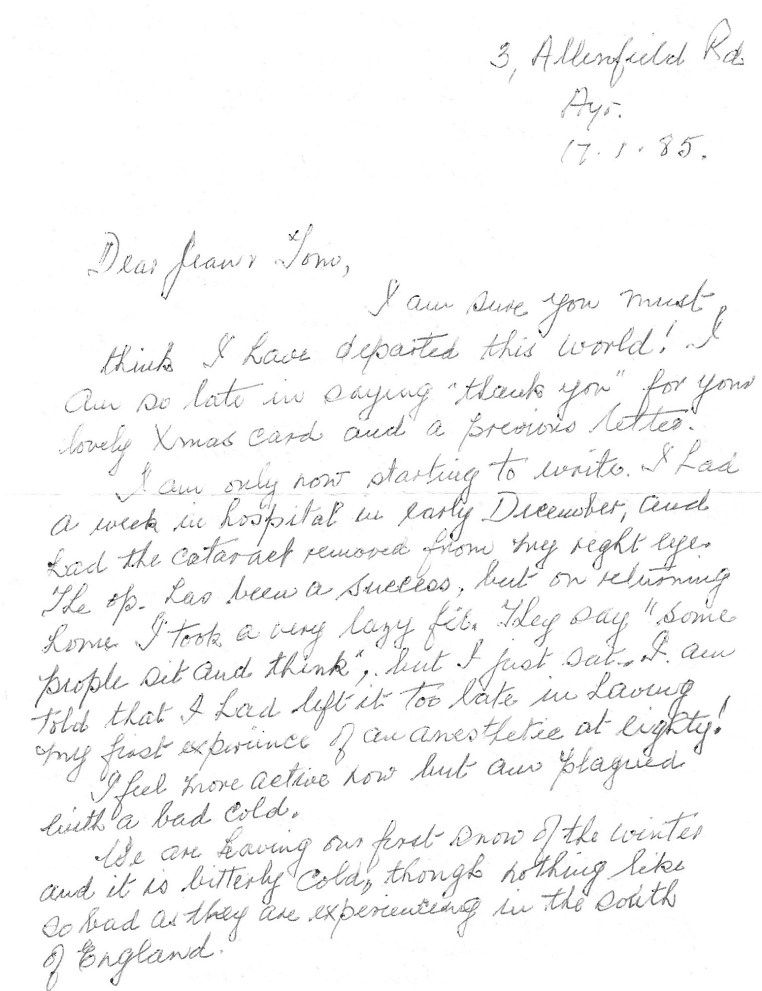 3, Allenfield Rd
Ayr.
17.1.85.
Dear Jean & Tom,
I am sure you must
think I have departed this world! I
am so late in saying "thank you" for your
lovely Xmas card and a previous letter.
I am only now starting to write. I had
a week in hospital in early December, and
had the cataract removed from my right eye.
The op. has been a success, but on returning
home I took a very lazy fit. They say "some
people sit and think", but I just sat. I am
told that I had left it too late in having
my first experience of an anesthetic at eighty!
I feel more active now but am plagued
with a bad cold.
We are having our first snow of the winter
and it is bitterly cold, though nothing like
so bad as they are experiencing in the south
of England.